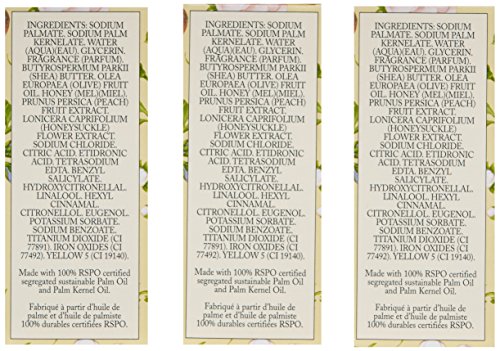 INGREDIENTS: SODIUM
PALMATE. SODIUM PALM
KERNELATE. WATER
(AQUA)(EAU). GLYCERIN.
FRAGRANCE (PARFUM).
BUTYROSPERMUM PARKII
(SHEA) BUTTER. OLEA
EUROPAEA (OLIVE) FRUIT
OIL. HONEY (MEL)(MIEL).
PRUNUS PERSICA (PEACH)
FRUIT EXTRACT.
LONICERA CAPRIFOLIUM
(HONEYSUCKLE)
FLOWER EXTRACT.
SODIUM CHLORIDE.
CITRIC ACID. ETIDRONIC
ACID. TETRASODIUM
EDTA. BENZYL
SALICYLATE.
HYDROXYCITRONELLAL.
LINALOOL. HEXYL
CINNAMAL.
CITRONELLOL. EUGENOL.
POTASSIUM SORBATE.
SODIUM BENZOATE.
TITANIUM DIOXIDE (CI
77891). IRON OXIDES (CI
77492). YELLOW 5 (CI 19140).
Made with 100% RSPO certified
segregated sustainable Palm Oil
and Palm Kernel Oil.
Fabriqué à partir d'huile de
palme et d'huile de palmiste
100% durables certifiées RSPO.
INGREDIENTS: SODIUM
PALMATE. SODIUM PALM
KERNELATE. WATER
(AQUA)(EAU). GLYCERIN.
FRAGRANCE (PARFUM).
BUTYROSPERMUM PARKII
(SHEA) BUTTER. OLEA
EUROPAEA (OLIVE) FRUIT
OIL. HONEY (MEL)(MIEL).
PRUNUS PERSICA (PEACH)
FRUIT EXTRACT.
LONICERA CAPRIFOLIUM
(HONEYSUCKLE)
FLOWER EXTRACT.
SODIUM CHLORIDE.
CITRIC ACID. ETIDRONIC
ACID. TETRASODIUM
EDTA. BENZYL
SALICYLATE.
HYDROXYCITRONELLAL.
LINALOOL. HEXYL
CINNAMAL.
CITRONELLOL. EUGENOL.
POTASSIUM SORBATE.
SODIUM BENZOATE.
TITANIUM DIOXIDE (CI
77891). IRON OXIDES (CI
77492). YELLOW 5 (CI 19140).
Made with 100% RSPO certified
segregated sustainable Palm Oil
and Palm Kernel Oil.
Fabriqué à partir d'huile de
palme et d'huile de palmiste
100% durables certifiées RSPO.
INGREDIENTS: SODIUM
PALMATE. SODIUM PALM
KERNELATE. WATER
(AQUA)(EAU). GLYCERIN.
FRAGRANCE (PARFUM).
BUTYROSPERMUM PARKII
(SHEA) BUTTER. OLEA
EUROPAEA (OLIVE) FRUIT
OIL. HONEY (MEL)(MIEL).
PRUNUS PERSICA (PEACH)
FRUIT EXTRACT.
LONICERA CAPRIFOLIUM
(HONEYSUCKLE)
FLOWER EXTRACT.
SODIUM CHLORIDE.
CITRIC ACID. ETIDRONIC
ACID. TETRASODIUM
EDTA. BENZYL
SALICYLATE.
HYDROXYCITRONELLAL.
LINALOOL. HEXYL
CINNAMAL.
CITRONELLOL. EUGENOL.
POTASSIUM SORBATE.
SODIUM BENZOATE.
TITANIUM DIOXIDE (CI
77891). IRON OXIDES (CI
77492). YELLOW 5 (CI 19140).
Made with 100% RSPO certified
segregated sustainable Palm Oil
and Palm Kernel Oil.
Fabriqué à partir d'huile de
palme et d'huile de palmiste
100% durables certifiées RSPO.